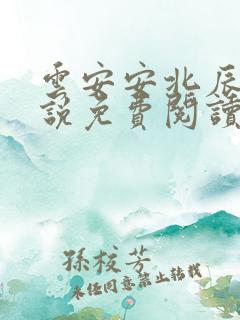 雲安安北辰
説免費閱讀
孫枝芳
未經同意禁止轉載